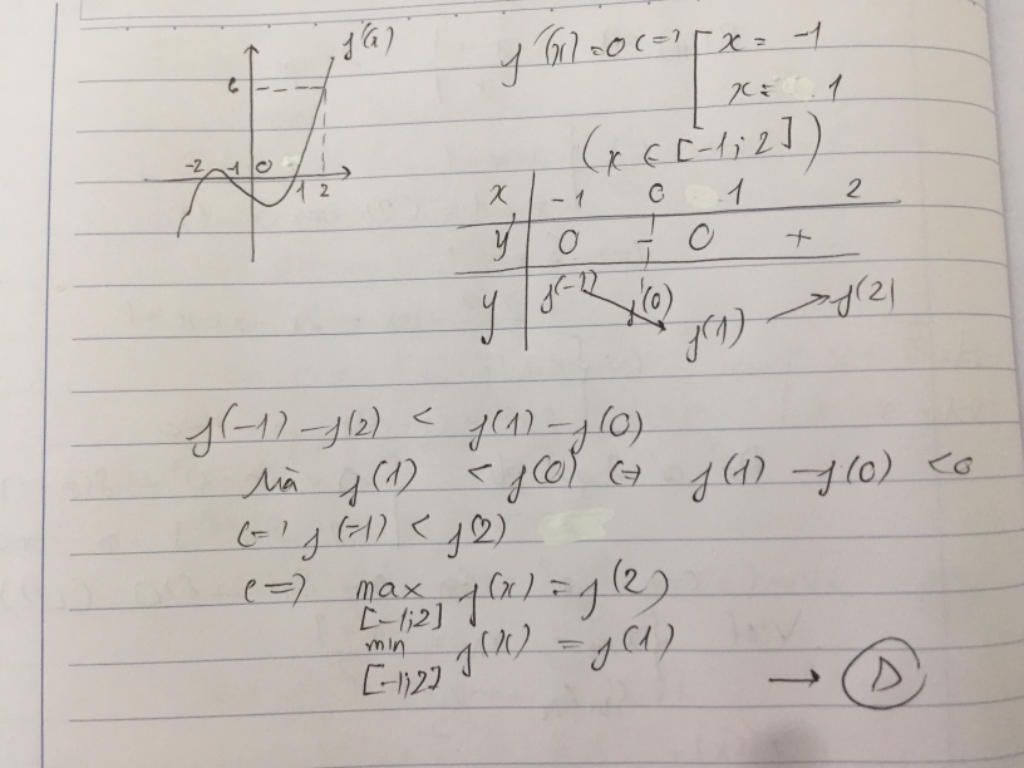 f'(x)
6
-2 -1 0 1 2
f'(x) = 0 <=> [ x = -1
x = 1
(x ∈ [-1; 2])
x | -1 0 1 2
y' | 0 - 0 +
y | f(-1) f(0) f(1) f(2)
f(-1) - f(2) < f(1) - f(0)
Mà f(1) < f(0) <=> f(1) - f(0) < 0
<=> f(-1) < f(2)
<=> max f(x) = f(2)
[-1;2]
min f(x) = f(1)
[-1;2]
→ D